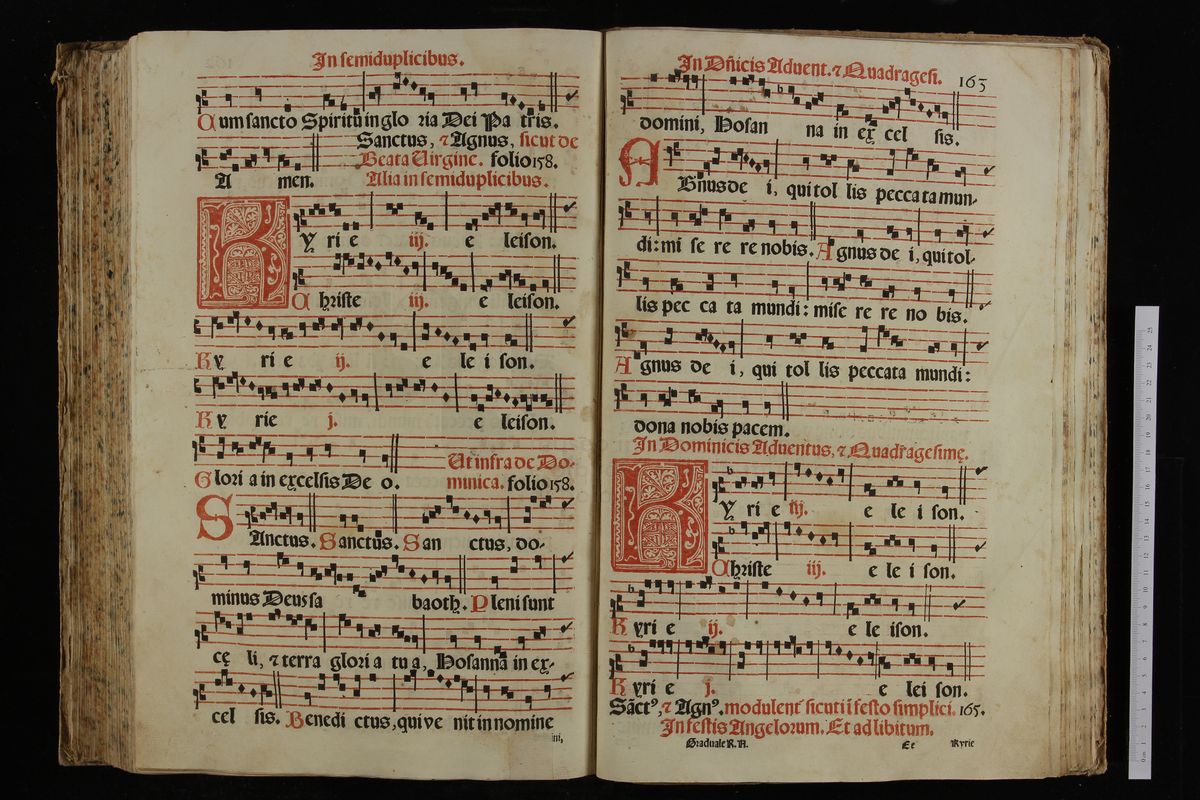 In semiduplicibus.
Cum sancto Spiritũ in glo ria Dei Pa tris.
Sanctus, ⁊ Agnus, sicut de
Beata Uirgine. folio 158.
A men. Alia in semiduplicibus.
K y ri e iij. e leison.
C hriste iij. e leison.
K y ri e ij. e le i son.
K y rie j. e leison.
Ut infra de Do-
Glori a in excelsis De o. munica. folio 158.
SAnctus. Sanctũs. San ctus, do-
minus Deus sa baoth. Pleni sunt
cę li, ⁊ terra glori a tu a, Hosanna in ex-
cel sis. Benedi ctus, qui ve nit in nomine
ini,
In Dñicis Aduent. ⁊ Quadragesi. 163
domini, Hosan na in ex cel sis.
AGnus de i, qui tol lis peccata mun-
di: mi se re re nobis. Agnus de i, qui tol-
lis pec ca ta mundi: mise re re no bis.
A gnus de i, qui tol lis peccata mundi:
dona nobis pacem.
In Dominicis Aduentus, ⁊ Quadragesimę.
K y ri e iij. e le i son.
Christe iij. e le i son.
K yri e ij. e le ison.
K yri e j. e lei son.
Sãctꝰ, ⁊ Agnꝰ. modulent̃ sicuti ĩ festo simplici. 165.
In festis Angelorum. Et ad libitum.
Graduale R. A. Et Kyrie